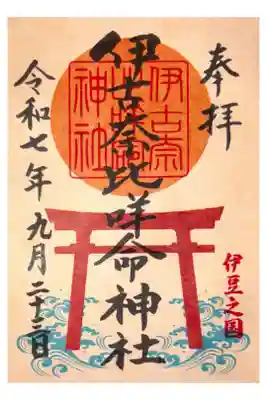 奉拝
伊豆之国
伊古奈比咩命神社
伊古奈
比咩命
神社
令和七年九月二十三日